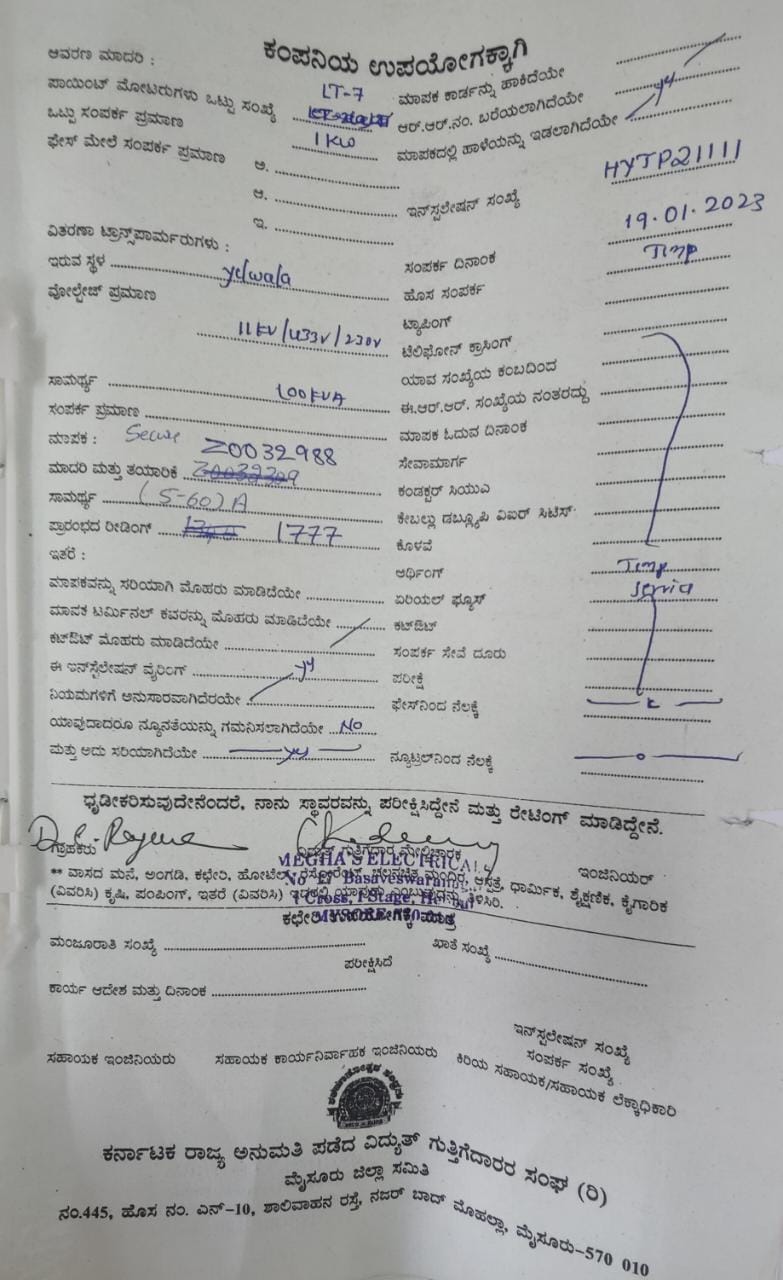 ಕಂಪನಿಯ ಉಪಯೋಗಕ್ಕಾಗಿ
ಆವರಣ ಮಾದರಿ :
ಪಾಯಿಂಟ್ ಮೋಟರುಗಳು ಒಟ್ಟು ಸಂಖ್ಯೆ LT-7 ಮಾಪಕ ಕಾರ್ಡನ್ನು ಹಾಕಿದೆಯೇ
ಒಟ್ಟು ಸಂಪರ್ಕ ಪ್ರಮಾಣ 1 KW ಆರ್.ಆರ್.ನಂ. ಬರೆಯಲಾಗಿದೆಯೇ
ಫೇಸ್ ಮೇಲೆ ಸಂಪರ್ಕ ಪ್ರಮಾಣ ಅ. ಮಾಪಕದಲ್ಲಿ ಹಾಳೆಯನ್ನು ಇಡಲಾಗಿದೆಯೇ
ಆ. ಇನ್‌ಸ್ಟಲೇಷನ್ ಸಂಖ್ಯೆ HYTP21111
ಇ.
ವಿತರಣಾ ಟ್ರಾನ್ಸ್‌ಪಾರ್ಮರುಗಳು : ಸಂಪರ್ಕ ದಿನಾಂಕ 19.01.2023
ಇರುವ ಸ್ಥಳ yelwala ಹೊಸ ಸಂಪರ್ಕ Temp
ವೋಲ್ಟೇಜ್ ಪ್ರಮಾಣ ಟ್ಯಾಪಿಂಗ್
11KV/433V/230V ಟೆಲಿಫೋನ್ ಕ್ರಾಸಿಂಗ್
ಯಾವ ಸಂಖ್ಯೆಯ ಕಂಬದಿಂದ
ಸಾಮರ್ಥ್ಯ 100KVA ಈ.ಆರ್.ಆರ್. ಸಂಖ್ಯೆಯ ನಂತರದ್ದು
ಸಂಪರ್ಕ ಪ್ರಮಾಣ ಮಾಪಕ ಓದುವ ದಿನಾಂಕ
ಮಾಪಕ : Secure Z0032988 ಸೇವಾಮಾರ್ಗ
ಮಾದರಿ ಮತ್ತು ತಯಾರಿಕೆ ಕಂಡಕ್ಟರ್ ಸಿಯುವಿ
ಸಾಮರ್ಥ್ಯ (5-60)A ಕೇಬಲ್ಲು ಡಬ್ಲ್ಯೂಪಿ ವಿಐರ್ ಸಿಟಿಸ್
ಪ್ರಾರಂಭದ ರೀಡಿಂಗ್ 1777 ಕೊಳವೆ
ಇತರೆ : ಅರ್ಥಿಂಗ್ Temp
ಮಾಪಕವನ್ನು ಸರಿಯಾಗಿ ಮೊಹರು ಮಾಡಿದೆಯೇ ಏರಿಯಲ್ ಫ್ಯೂಸ್ Service
ಮಾಪಕ ಟರ್ಮಿನಲ್ ಕವರನ್ನು ಮೊಹರು ಮಾಡಿದೆಯೇ ಕಟ್‌ಔಟ್
ಕಟ್‌ಔಟ್ ಮೊಹರು ಮಾಡಿದೆಯೇ ಸಂಪರ್ಕ ಸೇವೆ ದೂರು
ಈ ಇನ್‌ಸ್ಟೆಲೇಷನ್ ವೈರಿಂಗ್ ಪರೀಕ್ಷೆ
ನಿಯಮಗಳಿಗೆ ಅನುಸಾರವಾಗಿದೆರೆಯೇ ಫೇಸ್‌ನಿಂದ ನೆಲಕ್ಕೆ
ಯಾವುದಾದರೂ ನ್ಯೂನತೆಯನ್ನು ಗಮನಿಸಲಾಗಿದೆಯೇ No
ಮತ್ತು ಅದು ಸರಿಯಾಗಿದೆಯೇ ನ್ಯೂಟ್ರಲ್‌ನಿಂದ ನೆಲಕ್ಕೆ
ಧೃಡೀಕರಿಸುವುದೇನೆಂದರೆ, ನಾನು ಸ್ಥಾವರವನ್ನು ಪರೀಕ್ಷಿಸಿದ್ದೇನೆ ಮತ್ತು ರೇಟಿಂಗ್ ಮಾಡಿದ್ದೇನೆ.
ಗ್ರಾಹಕರು ವಿದ್ಯುತ್ ಗುತ್ತಿಗೆದಾರ ಮೇಲ್ವಿಚಾರಕ ಇಂಜಿನಿಯರ್
MEGHA'S ELECTRICALS
** ವಾಸದ ಮನೆ, ಅಂಗಡಿ, ಕಛೇರಿ, ಹೋಟೆಲ್, ರೆಸ್ಟೋರೆಂಟ್, ಚಲನಚಿತ್ರ ಮಂದಿರ, ಆಸ್ಪತ್ರೆ, ಧಾರ್ಮಿಕ, ಶೈಕ್ಷಣಿಕ, ಕೈಗಾರಿಕ
(ವಿವರಿಸಿ) ಕೃಷಿ, ಪಂಪಿಂಗ್, ಇತರೆ (ವಿವರಿಸಿ) ಇದರಲ್ಲಿ ಯಾವುದು ಎಂಬುವುದನ್ನು ತಿಳಿಸಿರಿ.
I Cross, I Stage,
ಕಛೇರಿ ಉಪಯೋಗಕ್ಕೆ ಮಾತ್ರ
ಮಂಜೂರಾತಿ ಸಂಖ್ಯೆ ಖಾತೆ ಸಂಖ್ಯೆ
ಪರೀಕ್ಷಿಸಿದೆ
ಕಾರ್ಯ ಆದೇಶ ಮತ್ತು ದಿನಾಂಕ
ಇನ್‌ಸ್ಟಲೇಷನ್ ಸಂಖ್ಯೆ
ಸಂಪರ್ಕ ಸಂಖ್ಯೆ
ಸಹಾಯಕ ಇಂಜಿನಿಯರು ಸಹಾಯಕ ಕಾರ್ಯನಿರ್ವಾಹಕ ಇಂಜಿನಿಯರು ಕಿರಿಯ ಸಹಾಯಕ/ಸಹಾಯಕ ಲೆಕ್ಕಾಧಿಕಾರಿ
ಕರ್ನಾಟಕ ರಾಜ್ಯ ಅನುಮತಿ ಪಡೆದ ವಿದ್ಯುತ್ ಗುತ್ತಿಗೆದಾರರ ಸಂಘ (ರಿ)
ಮೈಸೂರು ಜಿಲ್ಲಾ ಸಮಿತಿ
ನಂ.445, ಹೊಸ ನಂ. ಎನ್-10, ಶಾಲಿವಾಹನ ರಸ್ತೆ, ನಜರ್ ಬಾದ್ ಮೊಹಲ್ಲಾ, ಮೈಸೂರು-570 010